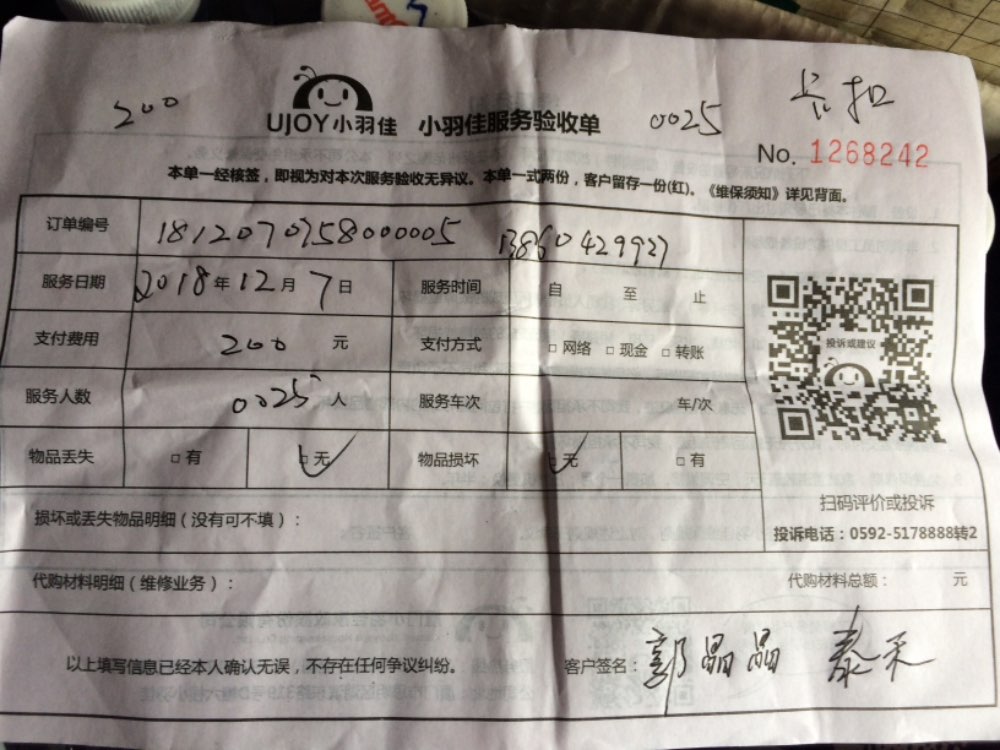 200
UJOY小羽佳 小羽佳服务验收单 0025
No. 1268242
本单一经核签，即视为对本次服务验收无异议。本单一式两份，客户留存一份(红)。《维保须知》详见背面。
订单编号 1812070758000005 13860429927
服务日期 2018年12月7日 服务时间 自 至 止
支付费用 200 元 支付方式 □网络 □现金 □转账
投诉或建议
服务人数 0025 人 服务车次 车/次
物品丢失 □有 □无 物品损坏 □无 □有
扫码评价或投诉
损坏或丢失物品明细（没有可不填）：
投诉电话：0592-5178888转2
代购材料明细（维修业务）： 代购材料总额： 元
以上填写信息已经本人确认无误，不存在任何争议纠纷。 客户签名：郭晶晶 泰禾